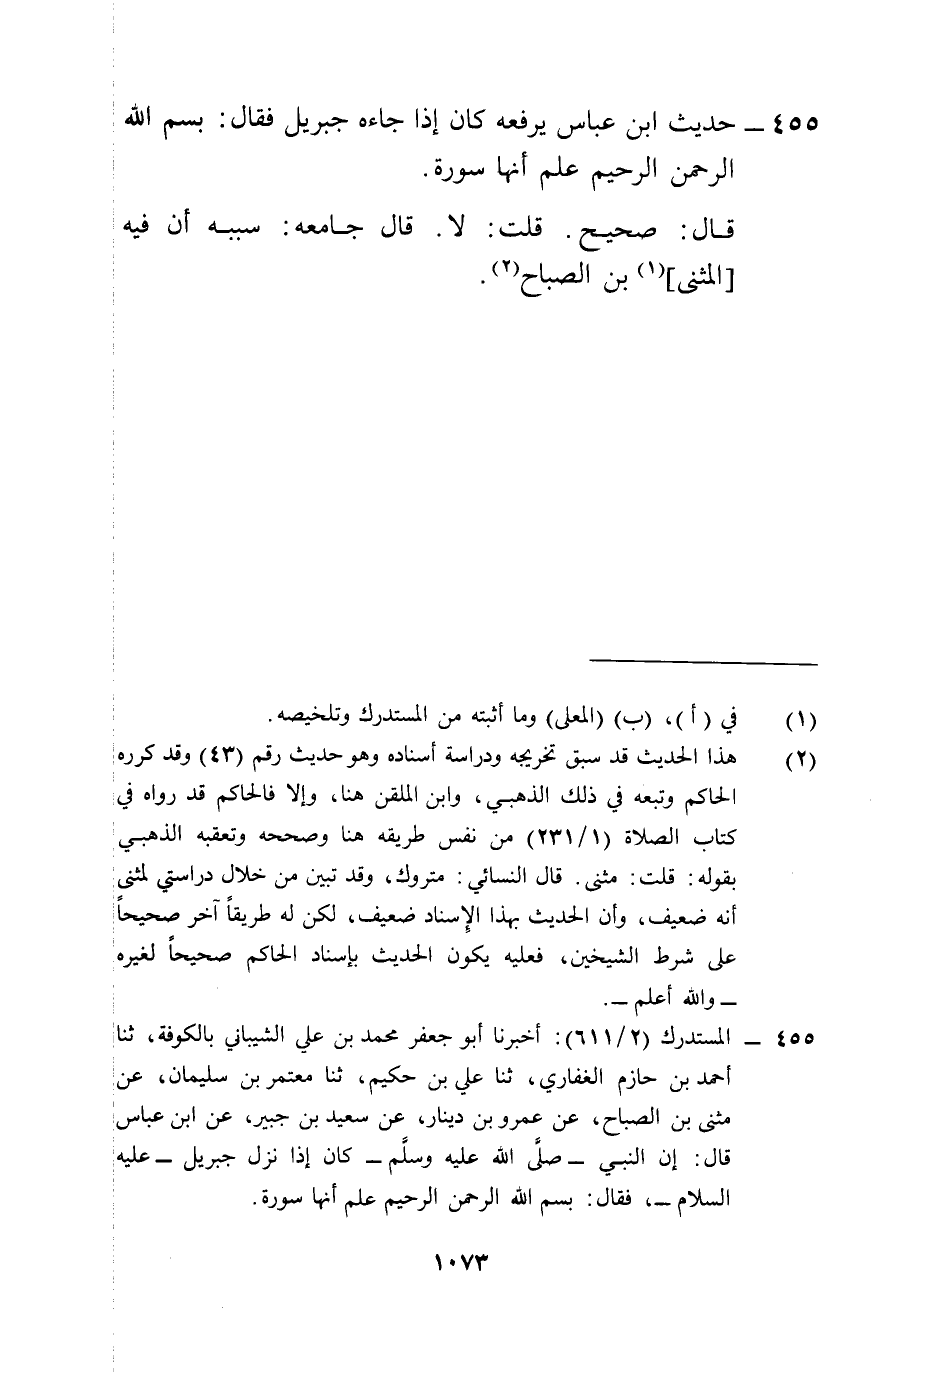 ٤٥٥ ــ حديث ابن عباس يرفعه كان إذا جاءه جبريل فقال: بسم الله
الرحمن الرحيم علم أنها سورة.
قـال: صحيـح. قلت: لا. قال جـامعه: سببـه أن فيه
[المثنى](١) بن الصباح(٢).
(١) في (أ)، (ب) (المعلى) وما أثبته من المستدرك وتلخيصه.
(٢) هذا الحديث قد سبق تخريجه ودراسة أسناده وهو حديث رقم (٤٣) وقد كرره
الحاكم وتبعه في ذلك الذهبـي، وابن الملقن هنا، وإلا فالحاكم قد رواه في
كتاب الصلاة (٢٣١/١) من نفس طريقه هنا وصححه وتعقبه الذهبـي
بقوله: قلت: مثنى. قال النسائي: متروك، وقد تبين من خلال دراستي لمثنى
أنه ضعيف، وأن الحديث بهذا الإسناد ضعيف، لكن له طريقاً آخر صحيحاً
على شرط الشيخين، فعليه يكون الحديث بإسناد الحاكم صحيحاً لغيره
ــ والله أعلم ــ.
٤٥٥ ــ المستدرك (٦١١/٢): أخبرنا أبو جعفر محمد بن علي الشيباني بالكوفة، ثنا
أحمد بن حازم الغفاري، ثنا علي بن حكيم، ثنا معتمر بن سليمان، عن
مثنى بن الصباح، عن عمرو بن دينار، عن سعيد بن جبير، عن ابن عباس
قال: إن النبـي ــ صلَّى الله عليه وسلَّم ــ كان إذا نزل جبريل ــ عليه
السلام ــ، فقال: بسم الله الرحمن الرحيم علم أنها سورة.
١٠٧٣